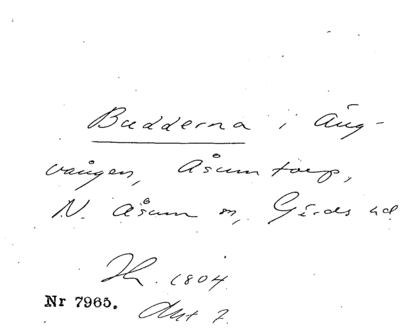 Budderna i Äng-
vången, Åsumtorp,
N. Åsum sn, Gärds hd
1804.
Nr 7965. Akt 7